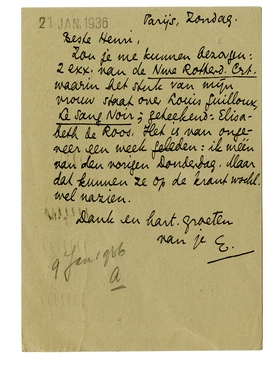 21 JAN. 1936
Parijs, Zondag.
Beste Henri,
Zou je me kunnen bezorgen:
2 exx. van de Nwe Rotterd. Crt.
waarin het stuk van mijn
vrouw staat over Louis Guilloux,
Le Sang Noir; geteekend: Elisa-
beth de Roos. Het is van onge-
veer een week geleden: ik meen
van den vorigen Donderdag. Maar
dat kunnen ze op de krant wschl.
wel nazien.
Dank en hart. groeten
van je E.
9 Jan 1936
A